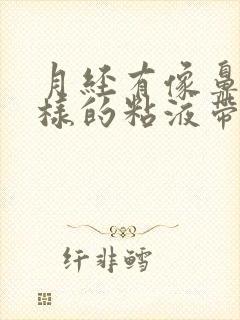 月经有像鼻
样的粘液带
纤非鳕